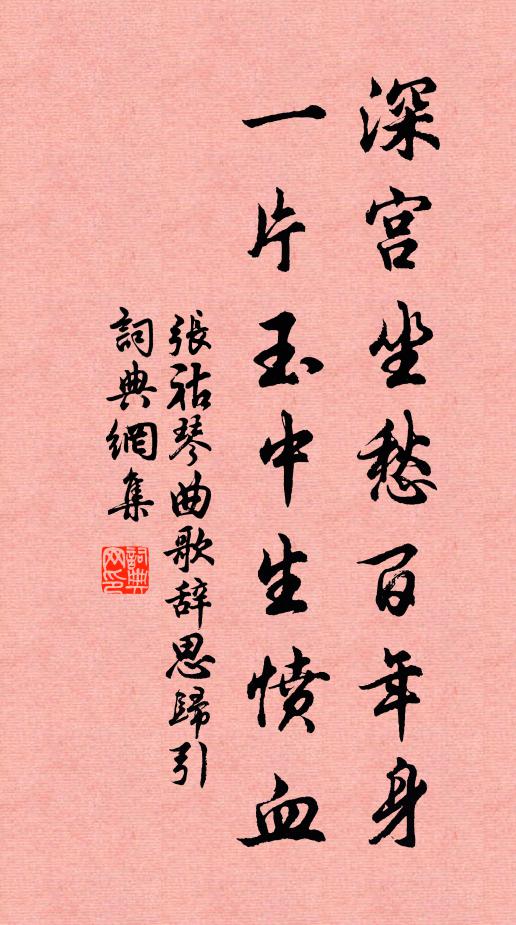 深宫坐愁百年身
一片玉中生愤血
張祜琴曲歌辞思歸引
詞典網集
詞典
网印